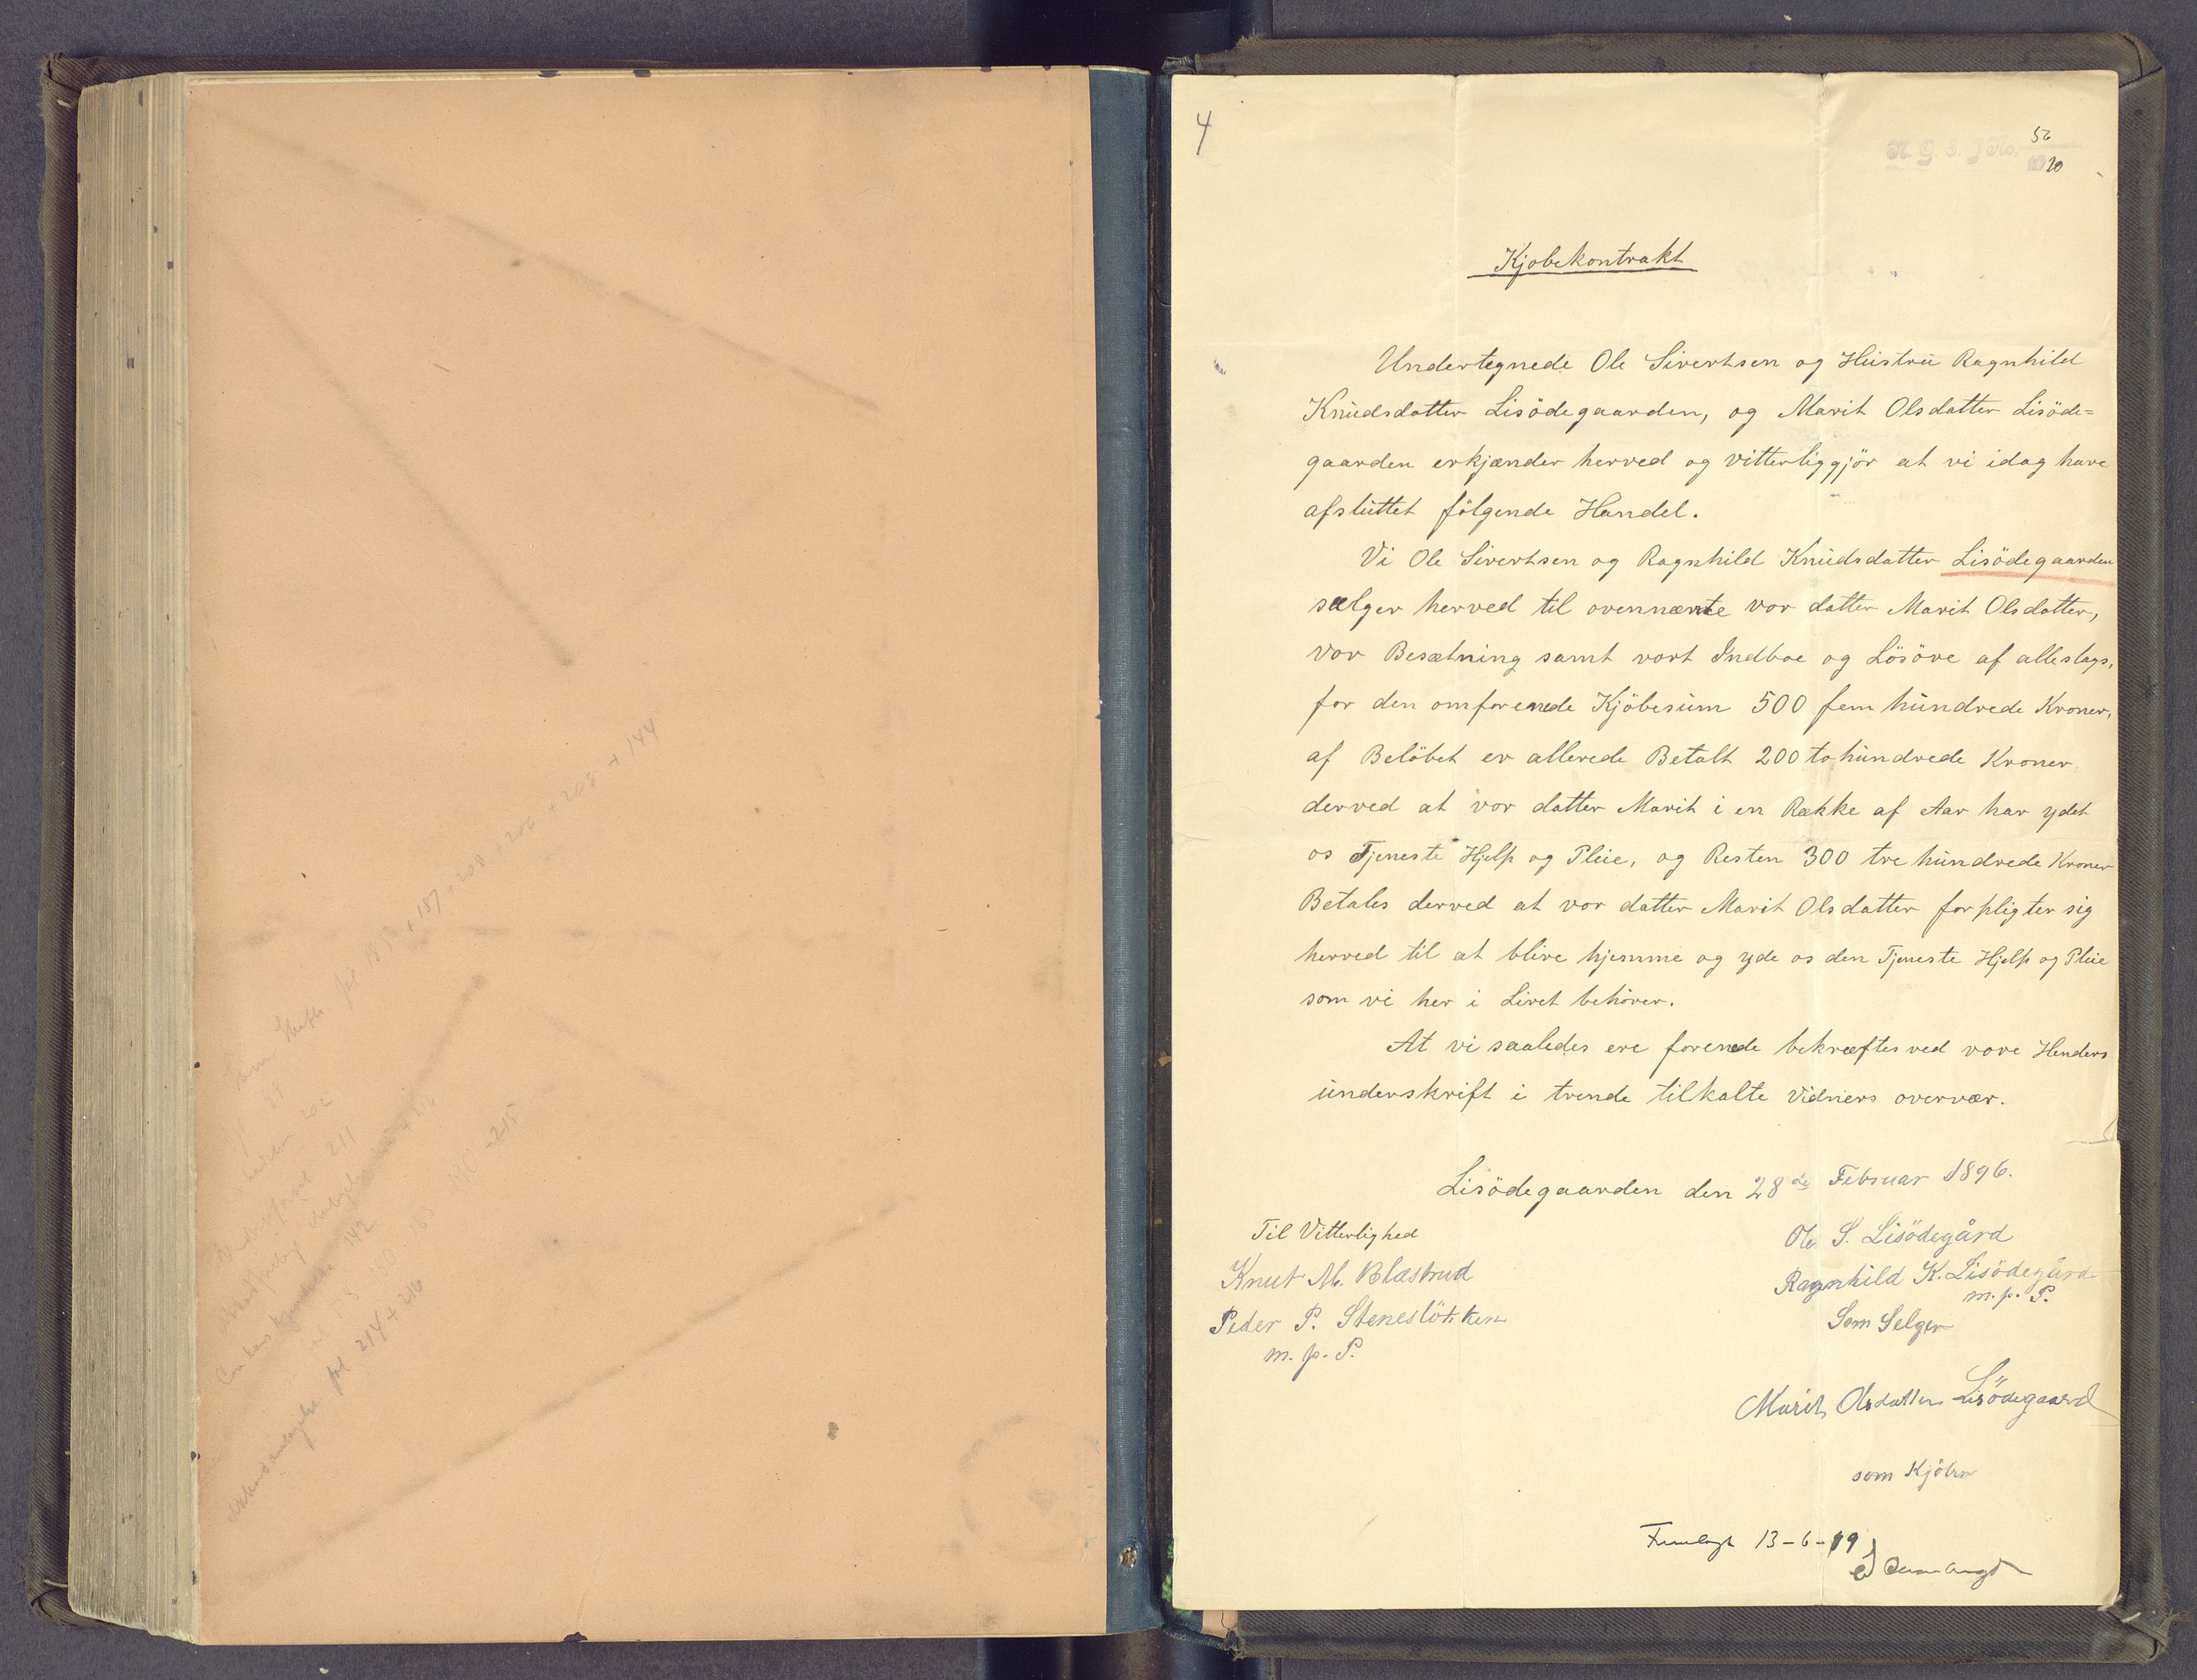 4
N. G. S. J No. 56
1920
Kjøbekontrakt
Undertegnede Ole Sivertsen og Hustru Ragnhild
Knudsdatter Lisödegaarden, og Marit Olsdatter Lisöde=
gaarden erkjænder herved og vitterliggjör at vi idag have
afsluttet fölgende Handel.
Vi Ole Sivertsen og Ragnhild Knudsdatter Lisödegaarden
sælger herved til ovennævnte vor datter Marit Olsdatter,
vor Besætning samt vort Indboe og Lösöre af alleslags,
for den omforenede Kjöbesum 500 fem hundrede Kroner,
af Belöbet er allerede Betalt 200 to hundrede Kroner
derved at vor datter Marit i en Række af Aar har ydet
os Tjeneste Hjelp og Pleie, og Resten 300 tre hundrede Kroner
Betales derved at vor datter Marit Olsdatter forpligter sig
herved til at blive hjemme og yde os den Tjeneste Hjelp og Pleie
som vi her i Livet behöver.
At vi saaledes ere forenede bekræftes ved vore Henders
underskrift i trende tilkalte Vidners overvær.
Lisödegaarden den 28de Februar 1896.
Til Vitterlighed
Knut M. Blæstrud
Peder P. Steneslökken
m. p. P.
Ole S. Lisödegård
Ragnhild K. Lisödegård
m. p. P.
Som Selger
Marit Olsdatter Lisödegaard
som Kjöber
Fremlagt 13-6-19
142
211
190-215
214 + 216
+ 187 + 208 + 206 + 208 + 144